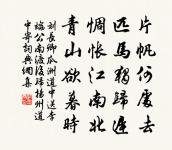 片帆何處去
匹馬獨歸遲
惆悵江南北
青山欲暮時
劉長卿瓜洲道中送李
端公南渡後歸揚州道
中寄詞典網